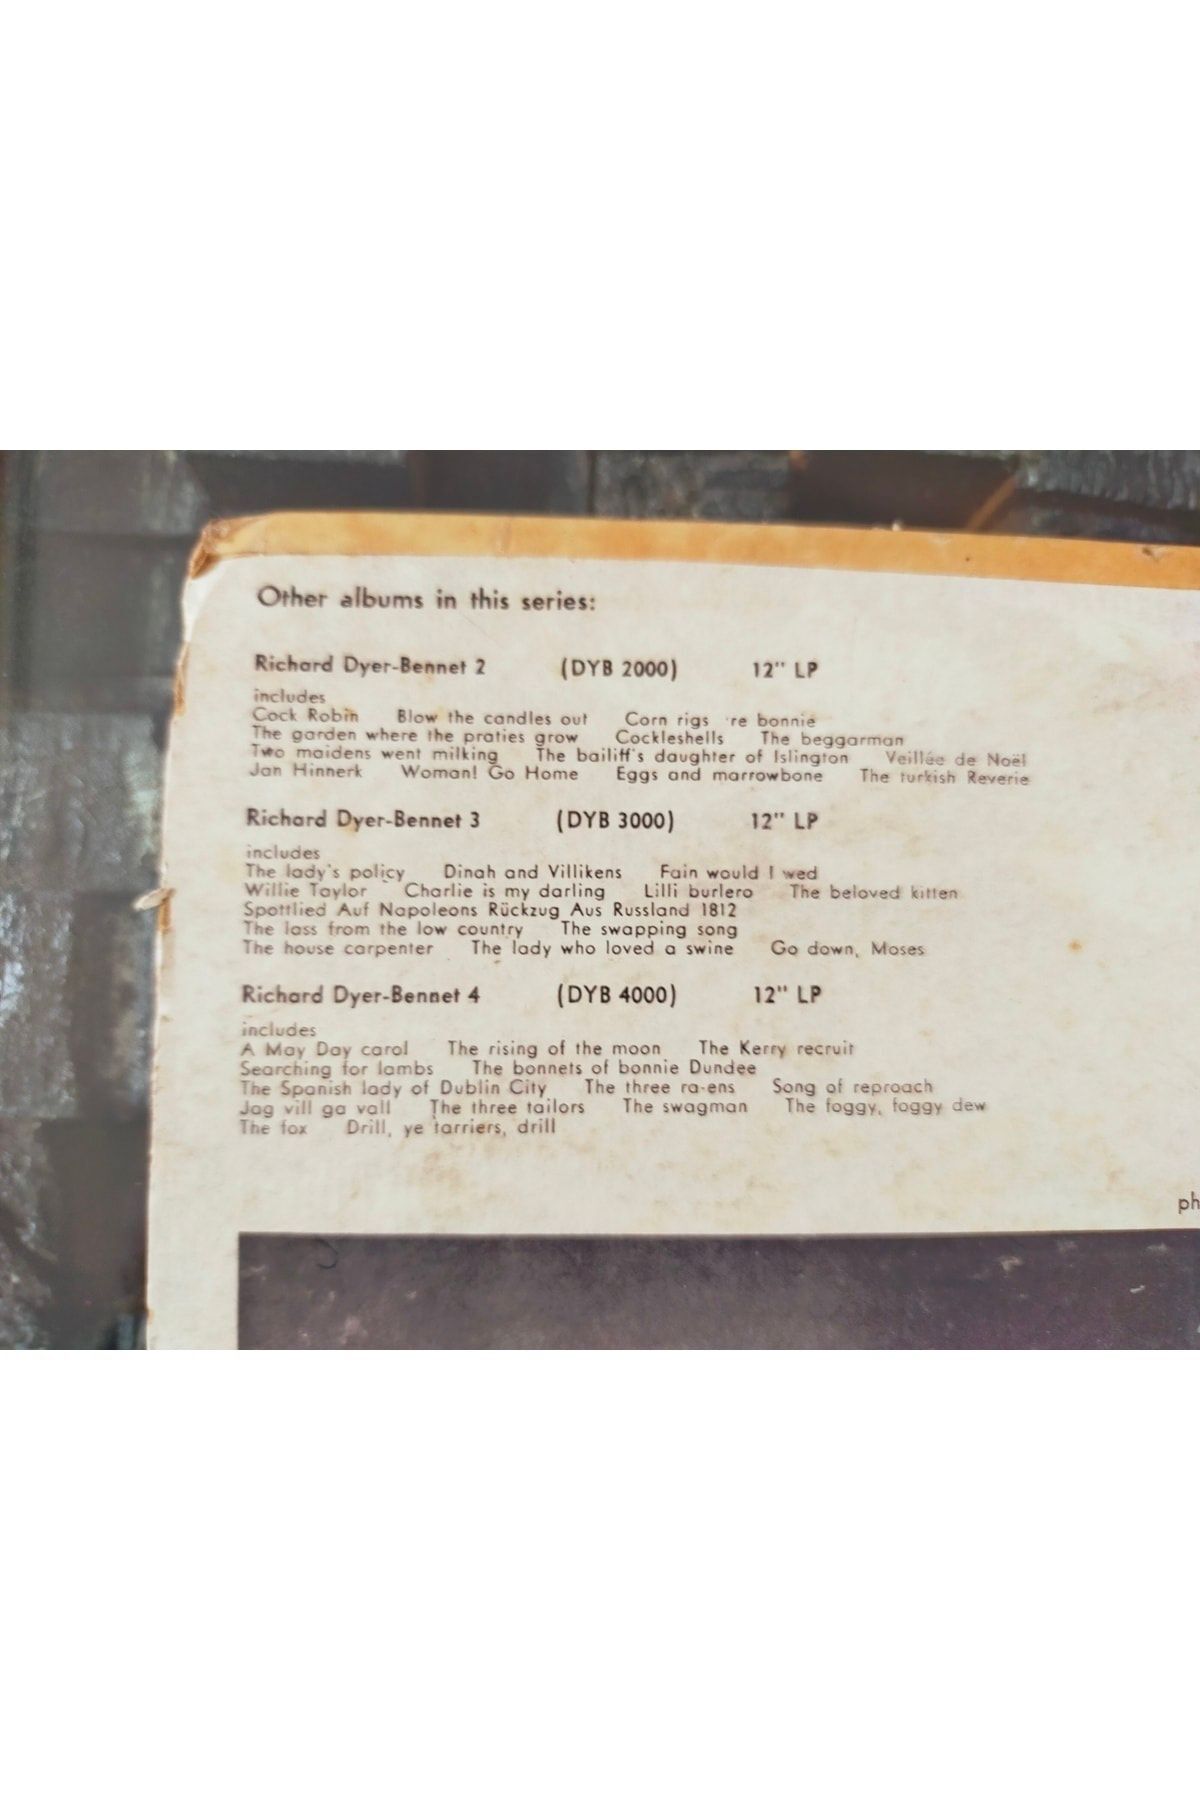 Other albums in this series:
Richard Dyer-Bennet 2 (DYB 2000) 12" LP
includes
Cock Robin Blow the candles out Corn rigs 're bonnie
The garden where the praties grow Cockleshells The beggarman
Two maidens went milking The bailiff's daughter of Islington Veillée de Noël
Jan Hinnerk Woman! Go Home Eggs and marrowbone The turkish Reverie
Richard Dyer-Bennet 3 (DYB 3000) 12" LP
includes
The lady's policy Dinah and Villikens Fain would I wed
Willie Taylor Charlie is my darling Lilli burlero The beloved kitten
Spottlied Auf Napoleons Rückzug Aus Russland 1812
The lass from the low country The swapping song
The house carpenter The lady who loved a swine Go down, Moses
Richard Dyer-Bennet 4 (DYB 4000) 12" LP
includes
A May Day carol The rising of the moon The Kerry recruit
Searching for lambs The bonnets of bonnie Dundee
The Spanish lady of Dublin City The three Song of reproach
Jag vill ga vall The three tailors The swagman The foggy, foggy dew
The fox Drill, ye tarriers, drill
ph